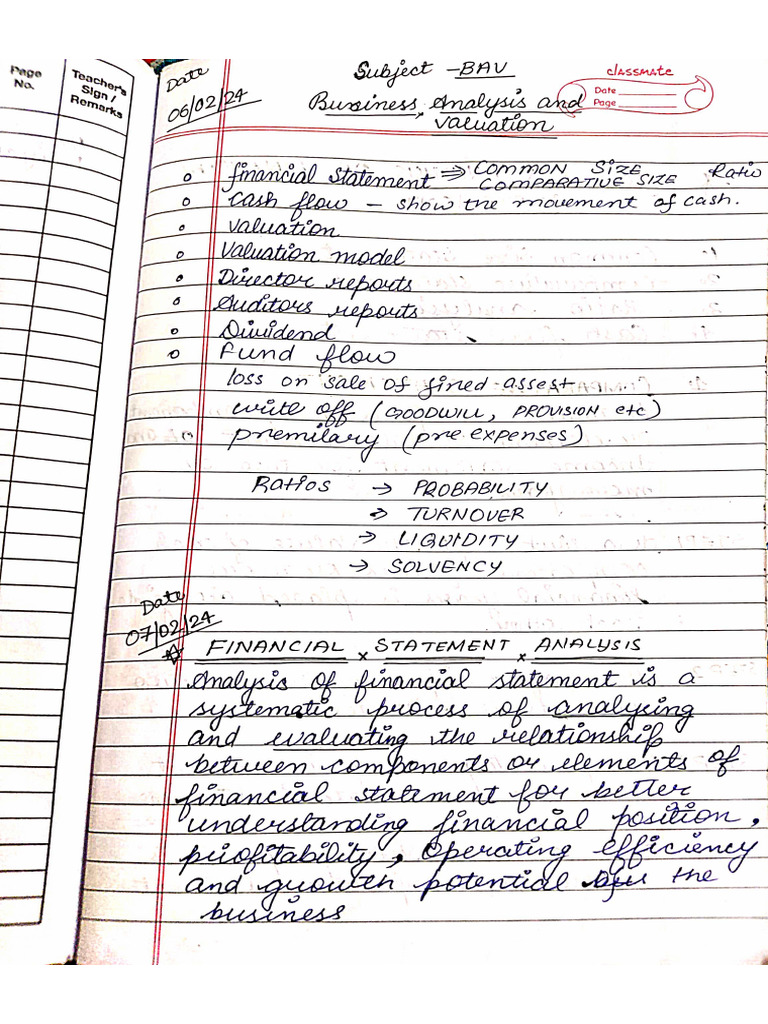 Page
No.
Teacher's
Sign /
Remarks
Date
06/02/24
Subject - BAV
classmate
Date
Page
Business Analysis and
Valuation
financial statement ⇒ COMMON SIZE Ratio
COMPARATIVE SIZE
cash flow - show the movement of cash.
valuation
valuation model
Director reports
Auditors reports
Dividend
Fund flow
loss on sale of fined assest
write off (GOODWILL, PROVISION etc)
premilary (pre expenses)
Ratios → PROBABILITY
→ TURNOVER
→ LIQUIDITY
→ SOLVENCY
Date
07/02/24
FINANCIAL STATEMENT ANALYSIS
Analysis of financial statement is a
systematic process of analysing
and evaluating the relationship
between components or elements of
financial statement for better
understanding financial position,
profitability, operating efficiency
and growth potential the
business